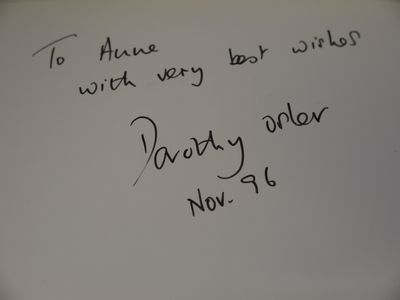 To Anne
with very best wishes
Dorothy Osler
Nov. 96